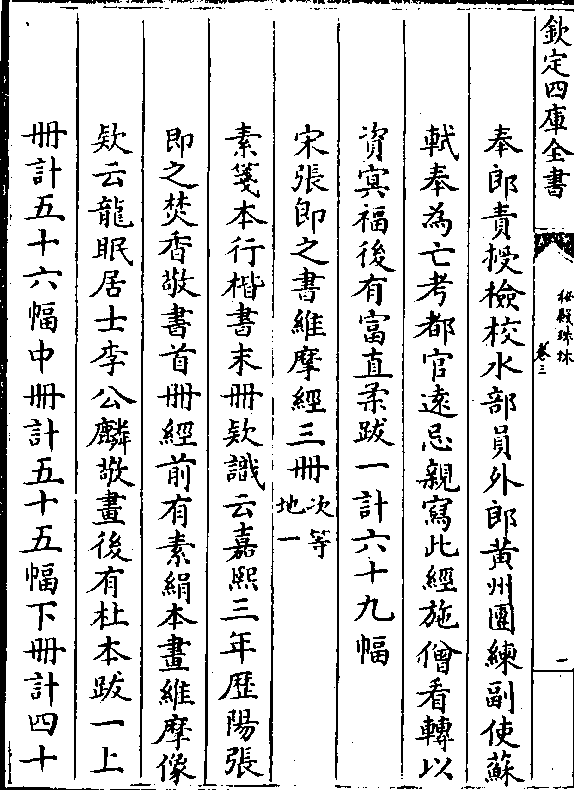 欽定四庫全書
秘殿珠林
卷三
一
奉郎責授檢校水部員外郎黄州團練副使蘇
軾奉為亡考都官遠忌親寫此經施僧看轉以
資冥福後有富直柔跋一計六十九幅
宋張即之書維摩經三冊次等
地一
素箋本行楷書末冊欵識云嘉熙三年歴陽張
即之焚香敬書首冊經前有素絹本畫維摩像
欵云龍眠居士李公麟敬畫後有杜本跋一上
冊計五十六幅中冊計五十五幅下冊計四十